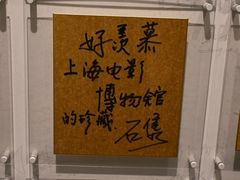 好羡慕
上海电影
博物馆
的珍藏
石隽